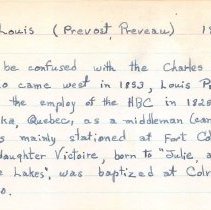 Louis (Prevost, Preveau) 18
be confused with the Charles
o came west in 1853, Louis P
the employ of the HBC in 1828
ka, Quebec, as a middleman (can
s mainly stationed at Fort Col
daughter Victoire, born to "Julie, a
e Lakes", was baptized at Colv
o.